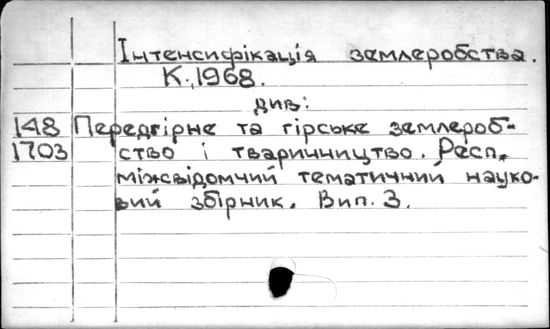 Інтенсифікація землеробства.
К., 1968.
див:
148 Передгірне та гірське землероб-
1703 ство і тваринництво. Респ.
міжвідомчий тематичний науко-
вий збірник. Вип. 3.